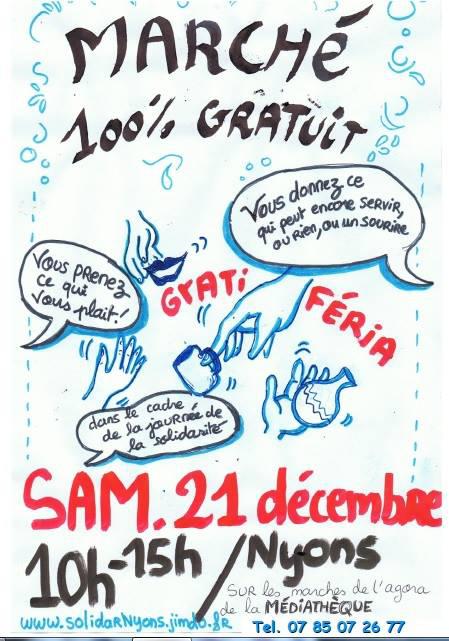 MARCHÉ
100% GRATUIT
Vous donnez ce
qui peut encore servir,
ou rien, ou un sourire
Vous prenez
ce qui
vous plait!
GRATI
FÉRIA
dans le cadre
de la journée de
la solidarité
SAM. 21 décembre
10h-15h / Nyons
SUR les marches de l'agora
de la MÉDIATHÈQUE
www.solidarNyons.jimdo.fr
Tel. 07 85 07 26 77